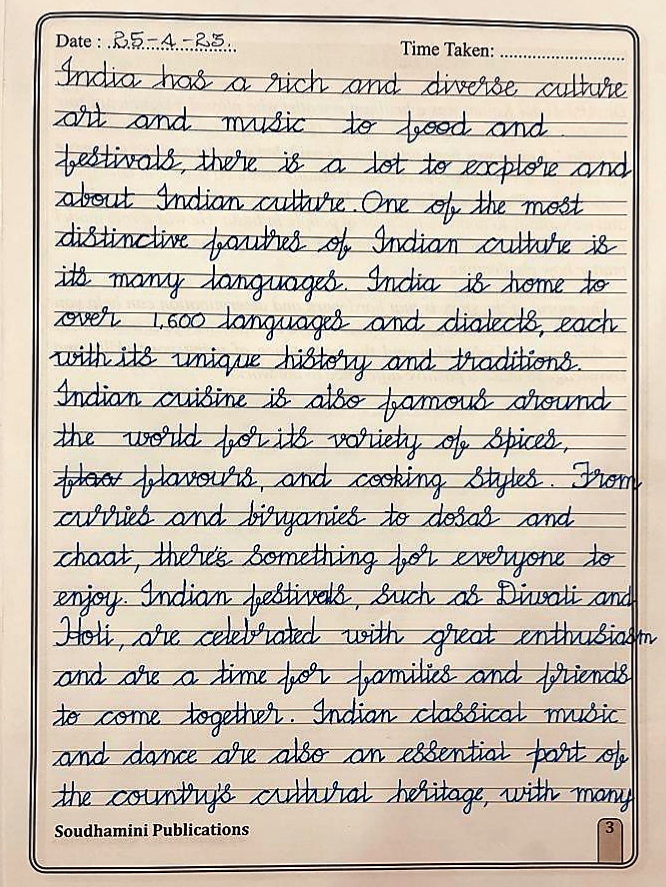 Date : 25-4-25. Time Taken: ............................
India has a rich and diverse culture
art and music to food and
festivals, there is a lot to explore and
about Indian culture. One of the most
distinctive fautres of Indian culture is
its many languages. India is home to
over 1,600 languages and dialects, each
with its unique history and traditions.
Indian cuisine is also famous around
the world for its variety of spices,
flavours, and cooking styles. From
curries and biryanies to dosas and
chaat, there's something for everyone to
enjoy. Indian festivels, such as Diwali and
Holi, are celebrated with great enthusiasm
and are a time for families and friends
to come together. Indian classical music
and dance are also an essential part of
the country's cultural heritage, with many
Soudhamini Publications 3